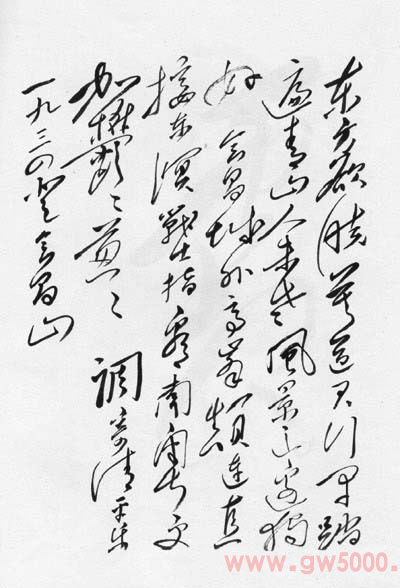 东方欲晓莫道君行早踏
遍青山人未老風景这边独
好 会昌城外高峯顛連直
接东溟戰士指看南粤更
加鬱々葱々 調寄清平乐
一九三四登会昌山
www.gw5000.